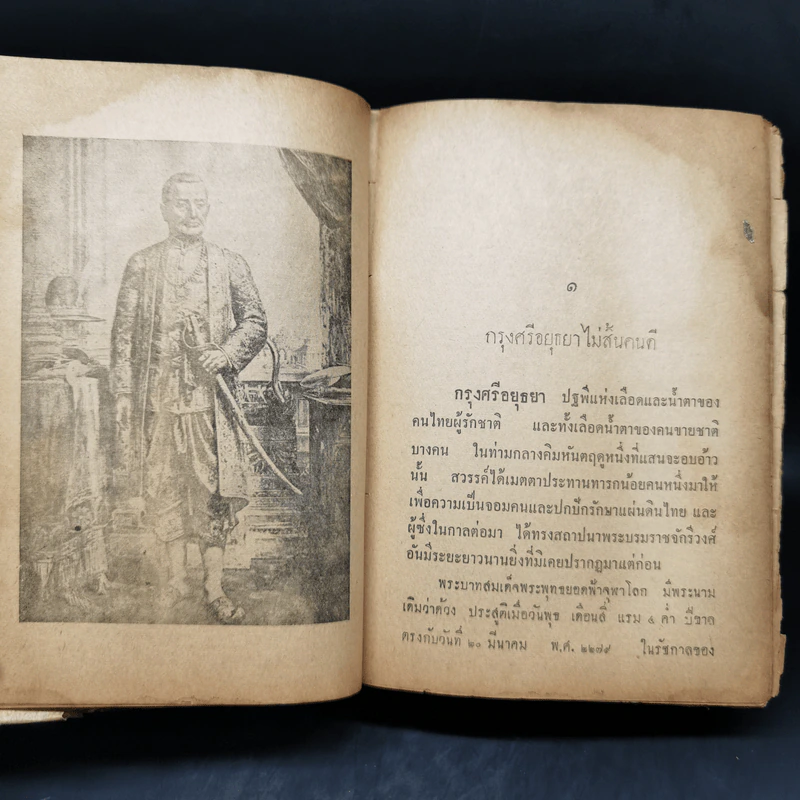 ๑
กรุงศรีอยุธยาไม่สิ้นคนดี
กรุงศรีอยุธยา ปฐพีแห่งเลือดและน้ำตาของ
คนไทยผู้รักชาติ และทั้งเลือดน้ำตาของคนขายชาติ
บางคน ในท่ามกลางคิมหันตฤดูหนึ่งที่แสนจะอบอ้าว
นั้น สวรรค์ได้เมตตาประทานทารกน้อยคนหนึ่งมาให้
เพื่อความเป็นจอมคนและปกปักรักษาแผ่นดินไทย และ
ผู้ซึ่งในกาลต่อมา ได้ทรงสถาปนาพระบรมราชจักรีวงศ์
อันมีระยะยาวนานยิ่งที่มิเคยปรากฏมาแต่ก่อน
พระบาทสมเด็จพระพุทธยอดฟ้าจุฬาโลก มีพระนาม
เดิมว่าด้วง ประสูติเมื่อวันพุธ เดือนสี่ แรม ๕ ค่ำ ปีขาล
ตรงกับวันที่ ๒๐ มีนาคม พ.ศ. ๒๒๗๙ ในรัชกาลของ